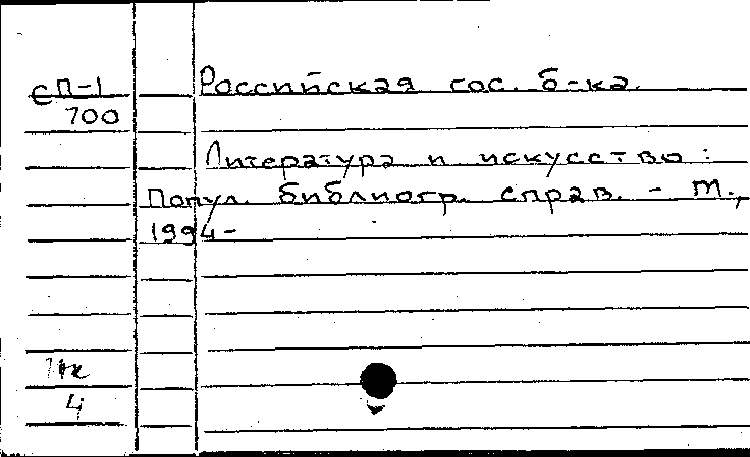 сП-1
700
Российская гос. б-ка.
Литература и искусство :
Попул. библиогр. справ. - М.,
1994-
4